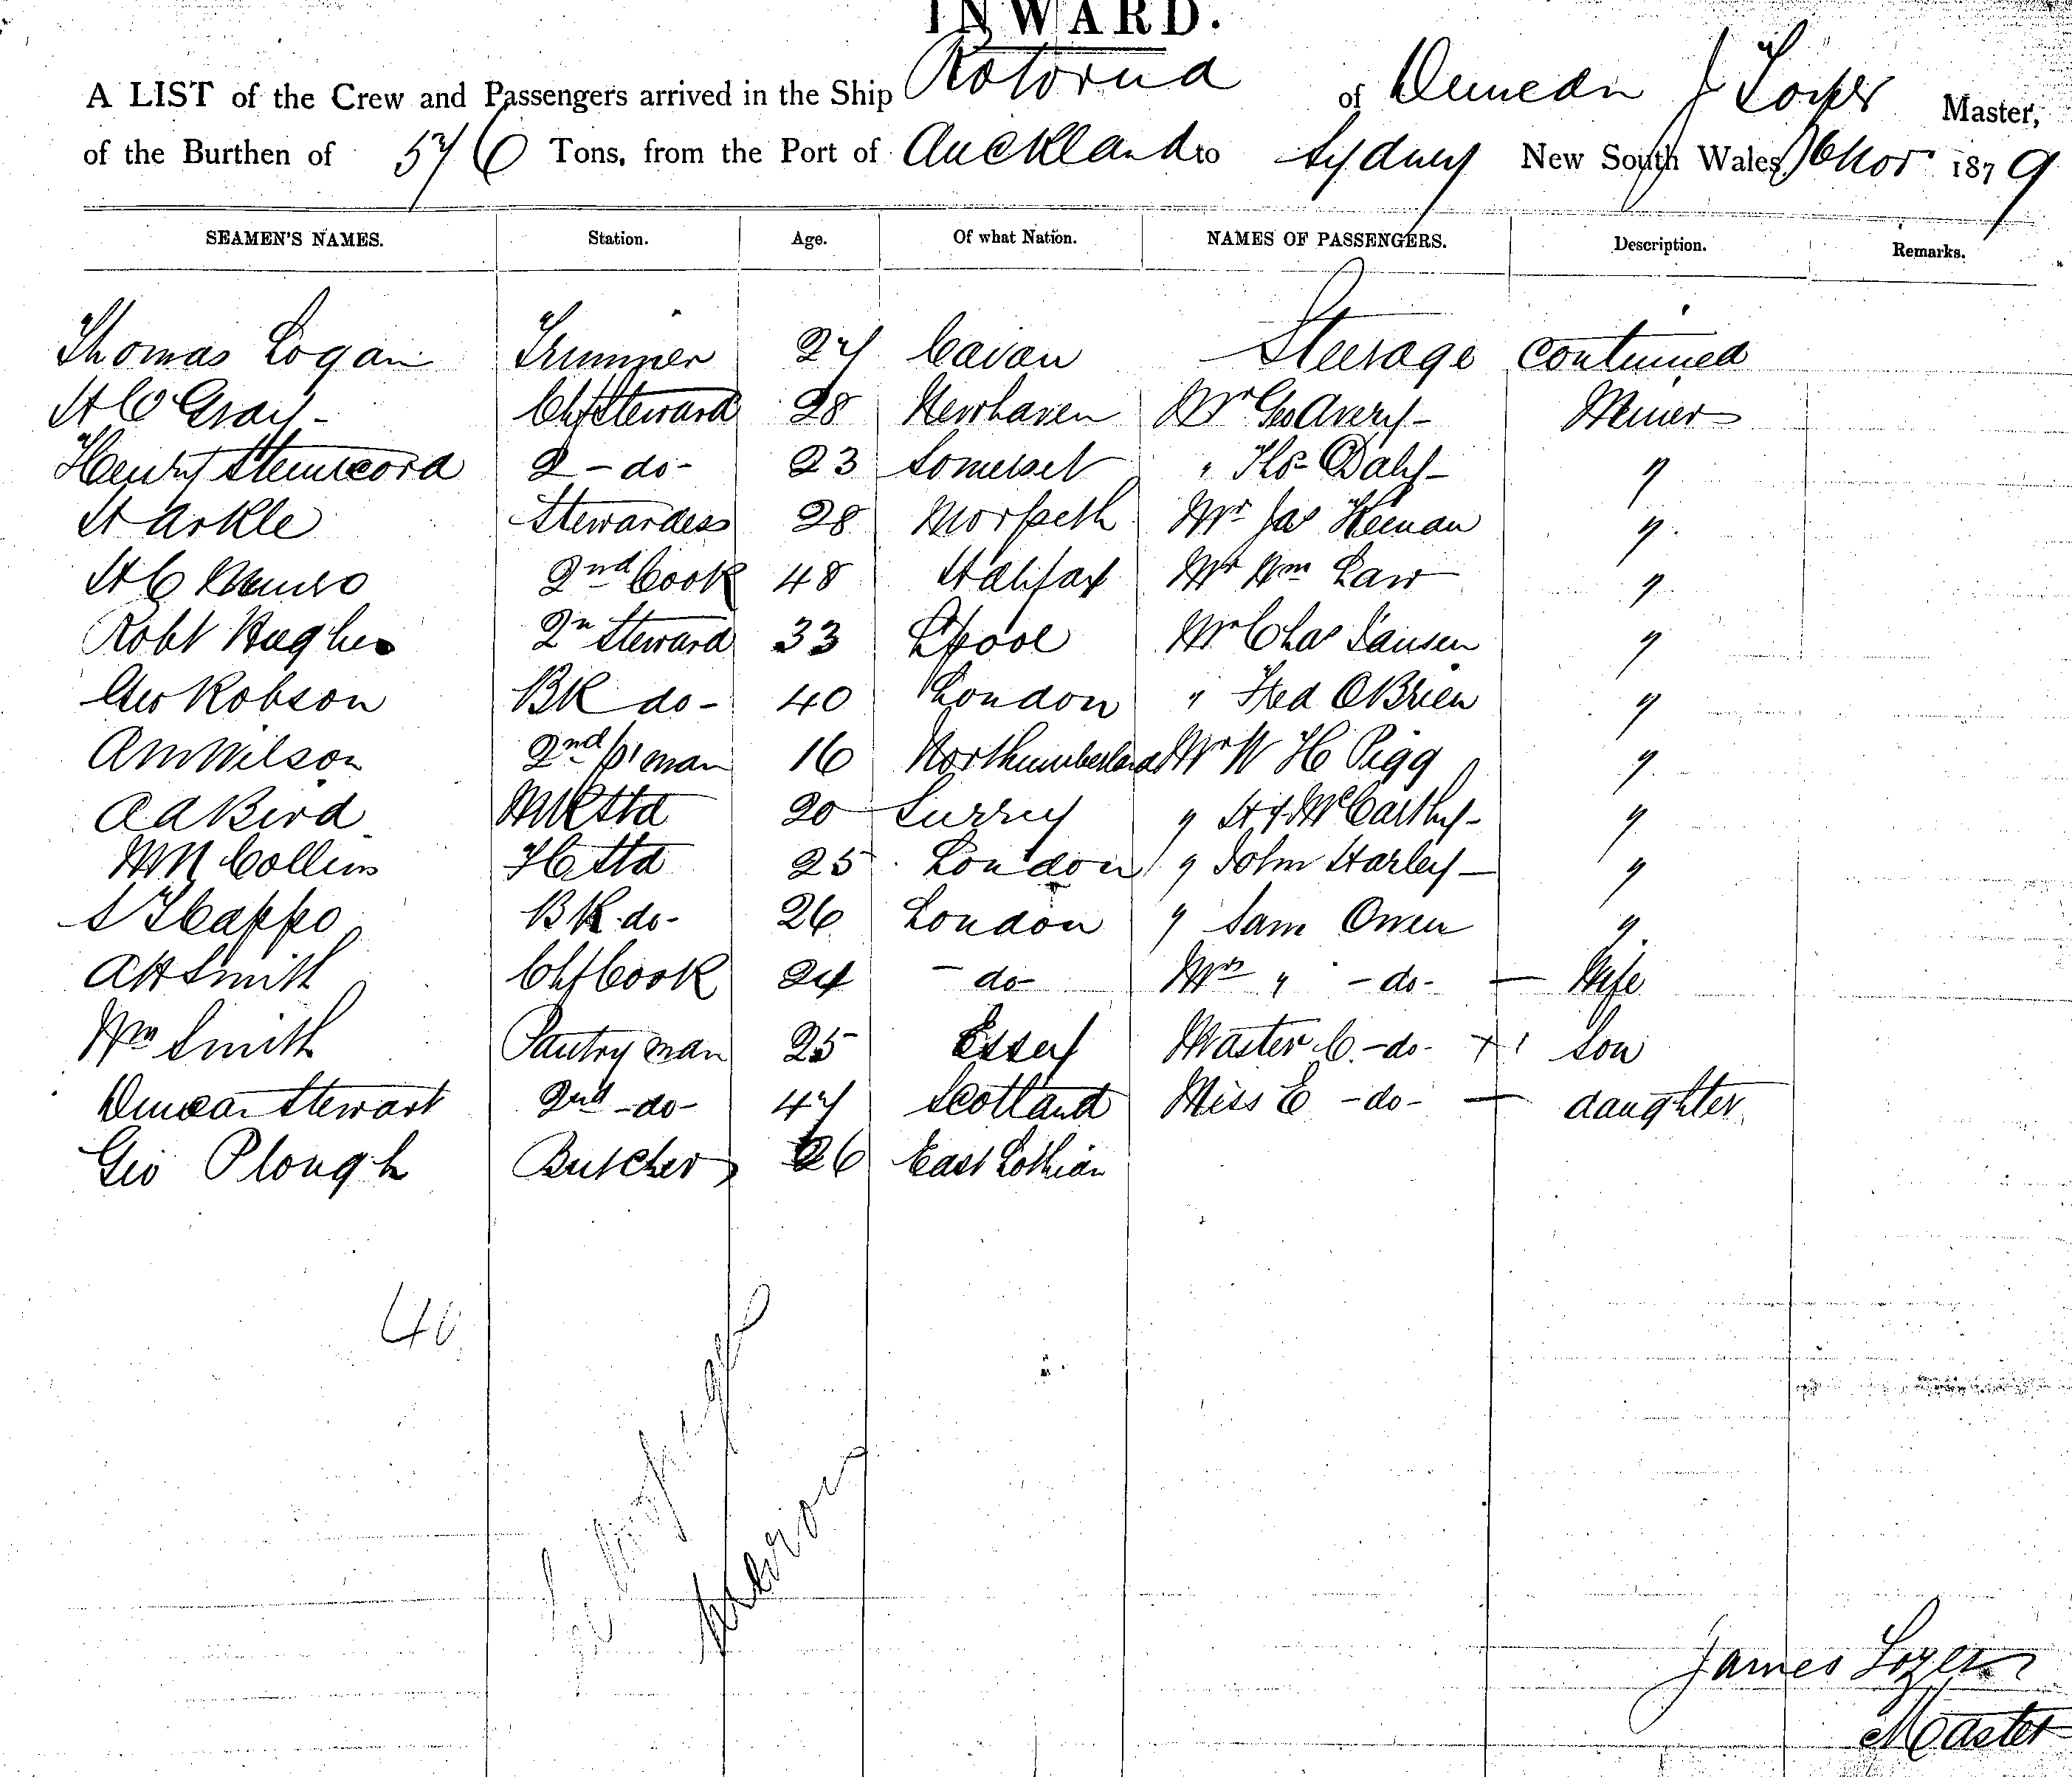 INWARD.
A LIST of the Crew and Passengers arrived in the Ship Rotorua of Dunedin J Master,
of the Burthen of 576 Tons, from the Port of Auckland to Sydney New South Wales, Nov 1879
SEAMEN'S NAMES. Station. Age. Of what Nation. NAMES OF PASSENGERS. Description. Remarks.
Thomas Logan Trimmer 27 Cavan Steerage Continued
H C Gray - Chf Steward 28 Newhaven Mr Geo Avery - Miner
Henry 2 - do - 23 Somerset " Thos Daly - "
H Arkle Stewardess 28 Morpeth Mr Jas Heenan "
H C Munro 2nd Cook 48 Halifax Mr Wm Law "
Robt Hughes 2n Steward 33 L'pool Mr Chas Jansen "
Geo Robson BK do - 40 London " Fred OBrien "
A M Wilson 2nd man 16 Northumberland Mr W H Pigg "
A A Bird 20 Surrey " McCarthy - "
Wm Collins 25 London " John Harley - "
S BK do - 26 London " Sam Owen "
A H Smith Chf Cook 24 - do - Mrs " - do - — Wife
Wm Smith Pantry man 25 Essex Master C. - do - son
Duncan Stewart 2nd - do - 47 Scotland Miss E - do - — daughter
Geo Plough Butcher 26 East Lothian
40
James
Master